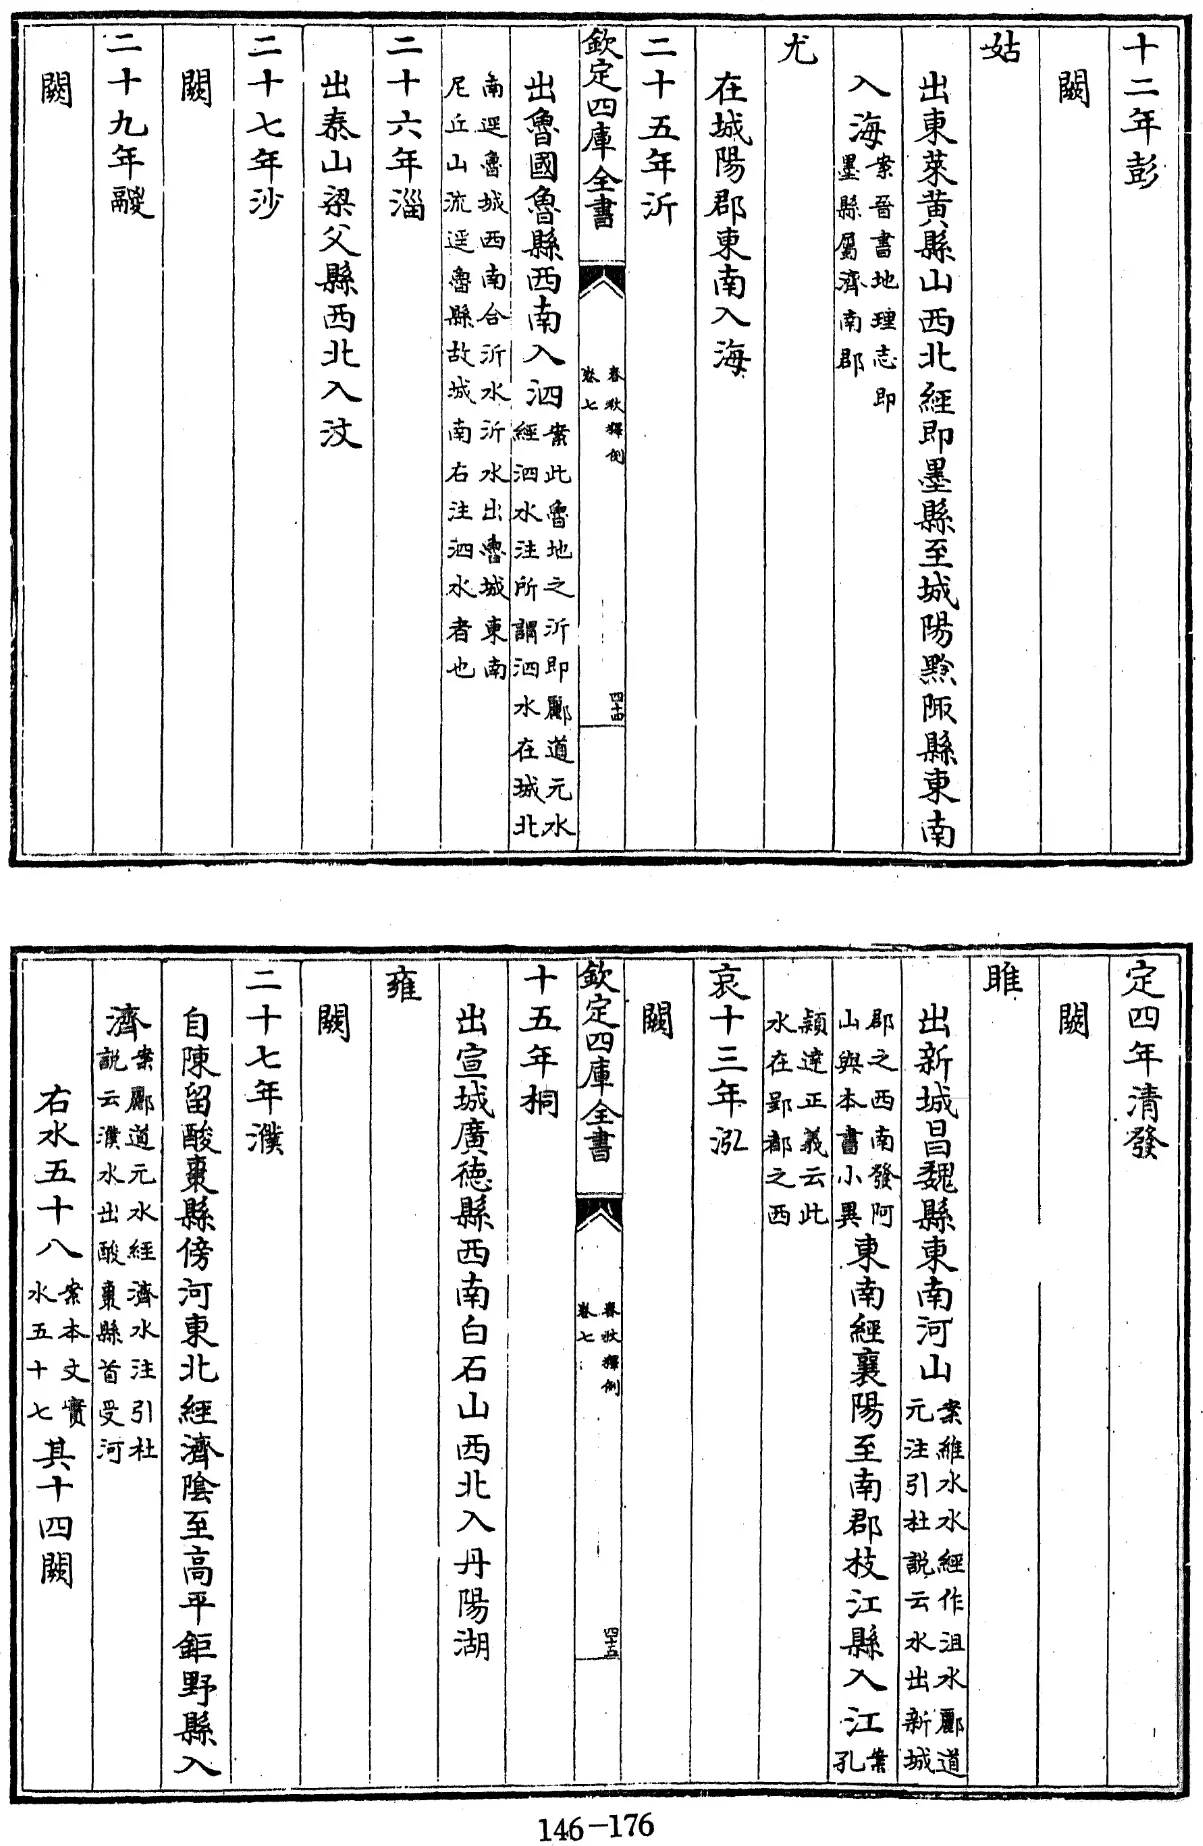 十二年彭
闕
姑
出東萊黄縣山西北經即墨縣至城陽黔陬縣東南
入海案晉書地理志即墨縣屬濟南郡
尤
在城陽郡東南入海
二十五年沂
欽定四庫全書
春秋釋例
卷七
四十四
出魯國魯縣西南入泗案此魯地之沂即酈道元水經泗水注所謂泗水在城北
南逕魯城西南合沂水沂水出魯城東南尼丘山流逕魯縣故城南右注泗水者也
二十六年淄
出泰山梁父縣西北入汶
二十七年沙
闕
二十九年鬷
闕
定四年清發
闕
雎
出新城昌魏縣東南河山案維水水經作沮水酈道元注引杜説云水出新城
郡之西南發阿山與本書小異東南經襄陽至南郡枝江縣入江案孔
穎達正義云此水在郢都之西
哀十三年泓
闕
欽定四庫全書
春秋釋例
卷七
四十五
十五年桐
出宣城廣德縣西南白石山西北入丹陽湖
雍
闕
二十七年濮
自陳留酸棗縣傍河東北經濟陰至高平鉅野縣入
濟案酈道元水經濟水注引杜説云濮水出酸棗縣首受河
右水五十八案本文實水五十七其十四闕
146-176